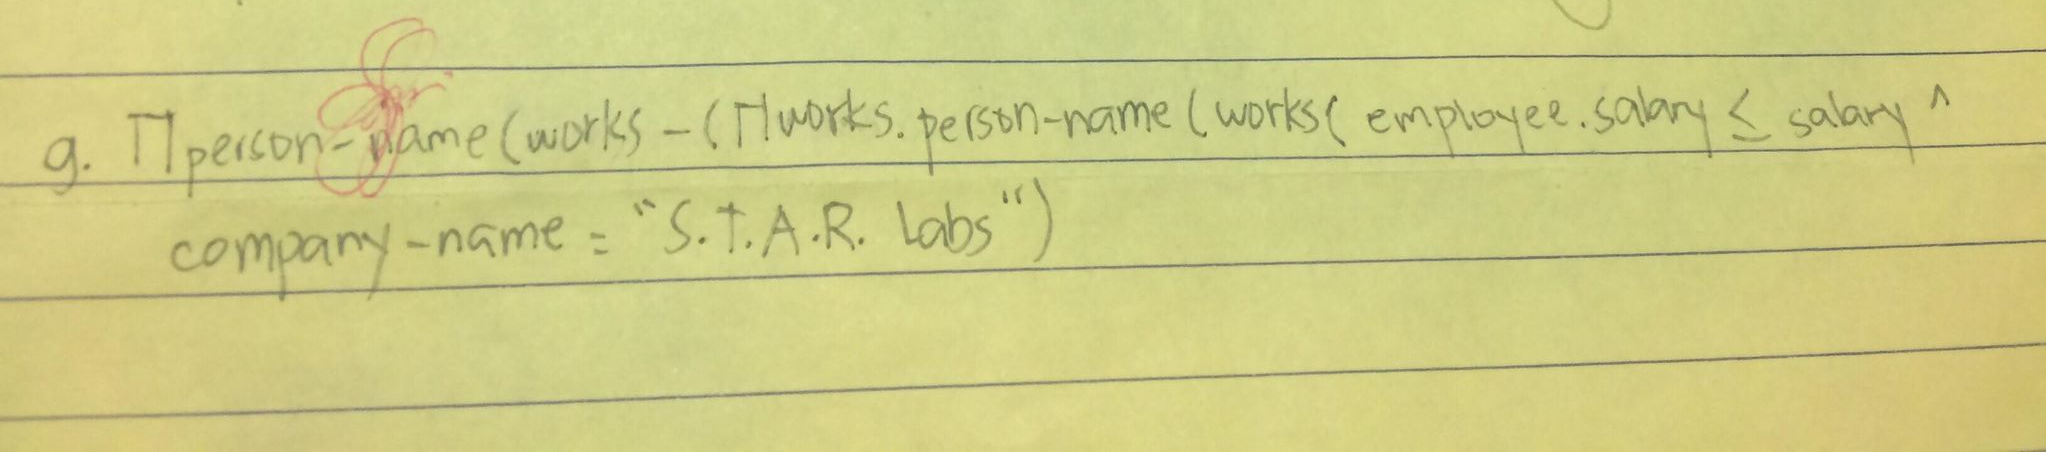 g. Πperson-name(works - (Πworks.person-name(works( employee.salary ≤ salary ^
company-name = "S.T.A.R. Labs")